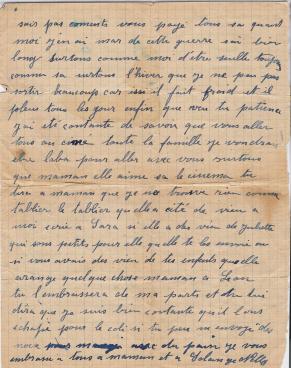 suis pas contente vous payé tous sa quand
moi j'en ai mar de cette guerre sai bien
long surtous comme moi d'etre seulle toujour
comme sa surtous l'hiver que je ne peu pas
sortir beaucoups car isi il fait froid et il
pleus tous les jour enfin que veu tu patience
j'ai été contante de savoir que vous aller
tous au cine toute la famille je voudrais
etre laba pour aller avec vous surtous
que maman elle aime sa le cinema tu
dira a maman que je ne trouve rien comme
tablier le tablier qu'elle a cité de vien a
moi ecrie a Sara si elle a des vien de Juliette
qui sons petits pour elle quelle te les envoie ou
si vous aviez des vien de tes enfants quelle
arange quelque chose maman a Jean
tu l'embrassera de ma parts et tu lui
dira que je suis bien contante qu'il l'ous
echapé pour le coli si tu peu m'envoyé des
noix pour mangé avec du pain je vous
embrasse a tous a maman et a Solange